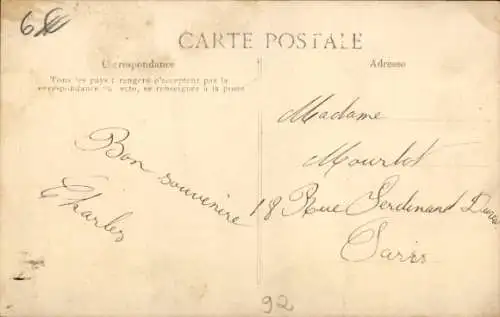 CARTE POSTALE
Correspondance
Tous les pays étrangers n'acceptent pas la
correspondance au recto, se renseigner à la poste
Bon souvenire
Charles
Adresse
Madame
Mourlot
18 Rue Ferdinand
Paris
92